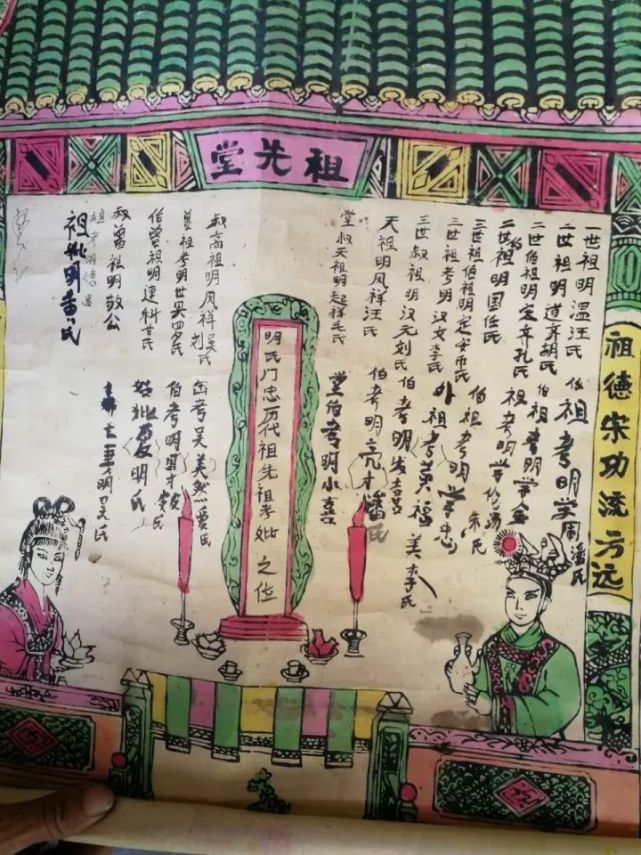 祖先堂
祖德宗功流方远
一世祖明温汪氏
二世祖明道齐胡氏
二世伯祖明定齐孔氏
二世伯祖明国任氏
三世祖伯明定安币氏
三世祖考明汉文李氏
三世叔祖明汉元刘氏
天祖明凤祥汪氏
堂叔天祖明起祥毛氏
伯祖考明学周潘氏
伯祖考明学金
祖考明学伦汤
伯祖考明学忠朱氏
外祖考黄福美李氏
伯考明发喜
伯考明亮才潘氏
堂伯考明小喜
明氏门忠历代祖先祖考妣之位
叔高祖明凤祥吴氏
曾祖考明世英罗氏
伯曾祖明连科甘氏
叔曾祖明敬公
祖妣明香氏
岳考吴美然爱氏
伯考明财